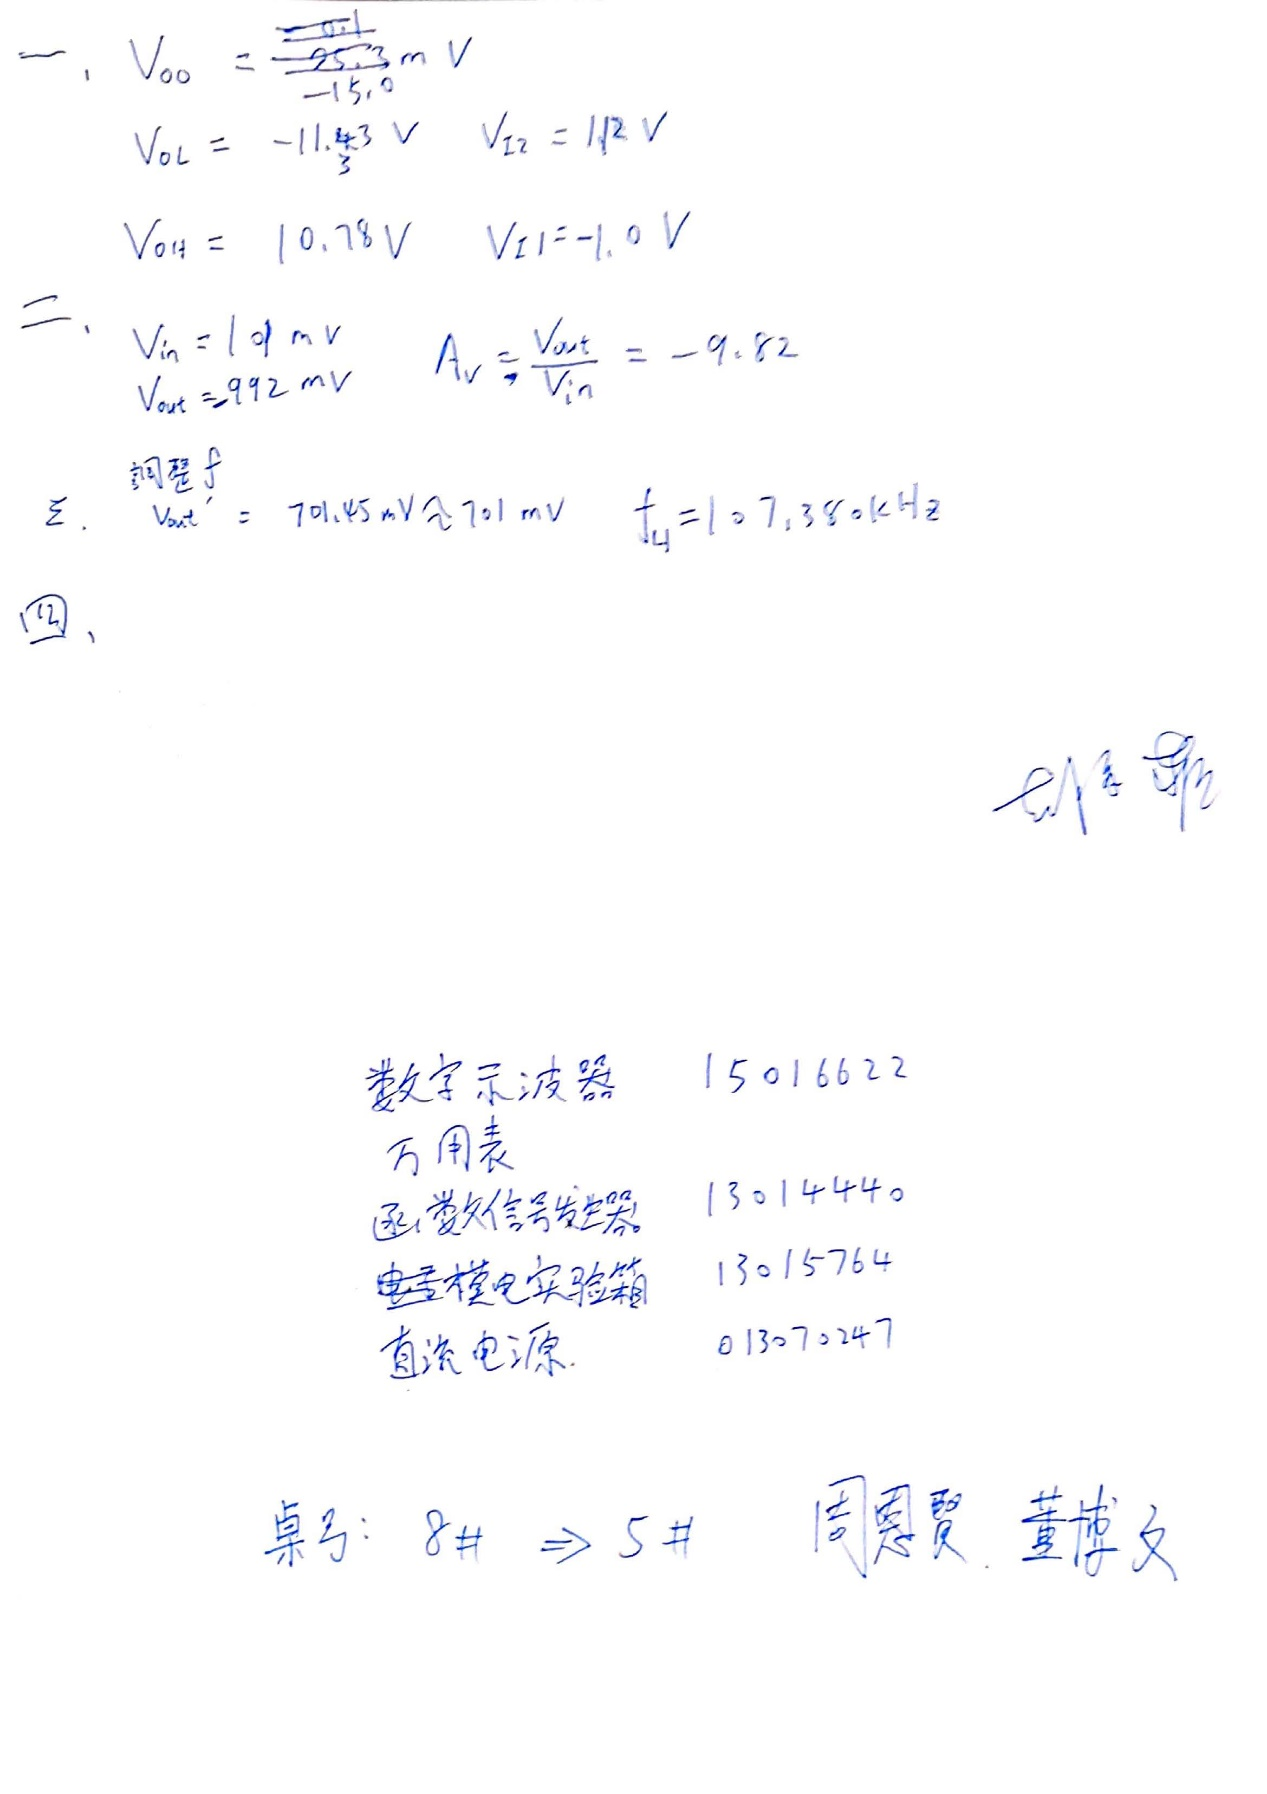 一、 V₀₀ = -15.0 mV
V_OL = -11.33 V V_I2 = 1.2 V
V_OH = 10.78V V_I1=-1.0 V
二、 Vin = 101 mV Av = Vout/Vin = -9.82
Vout = -992 mV
調整f
三. Vout' = 701.45mV≈701mV f_H=107.380kHz
四、
数字示波器 15016622
万用表
函数信号发生器 13014440
模电实验箱 13015764
直流电源. 013070247
桌号: 8# ⇒ 5# 周恩賢. 董博文